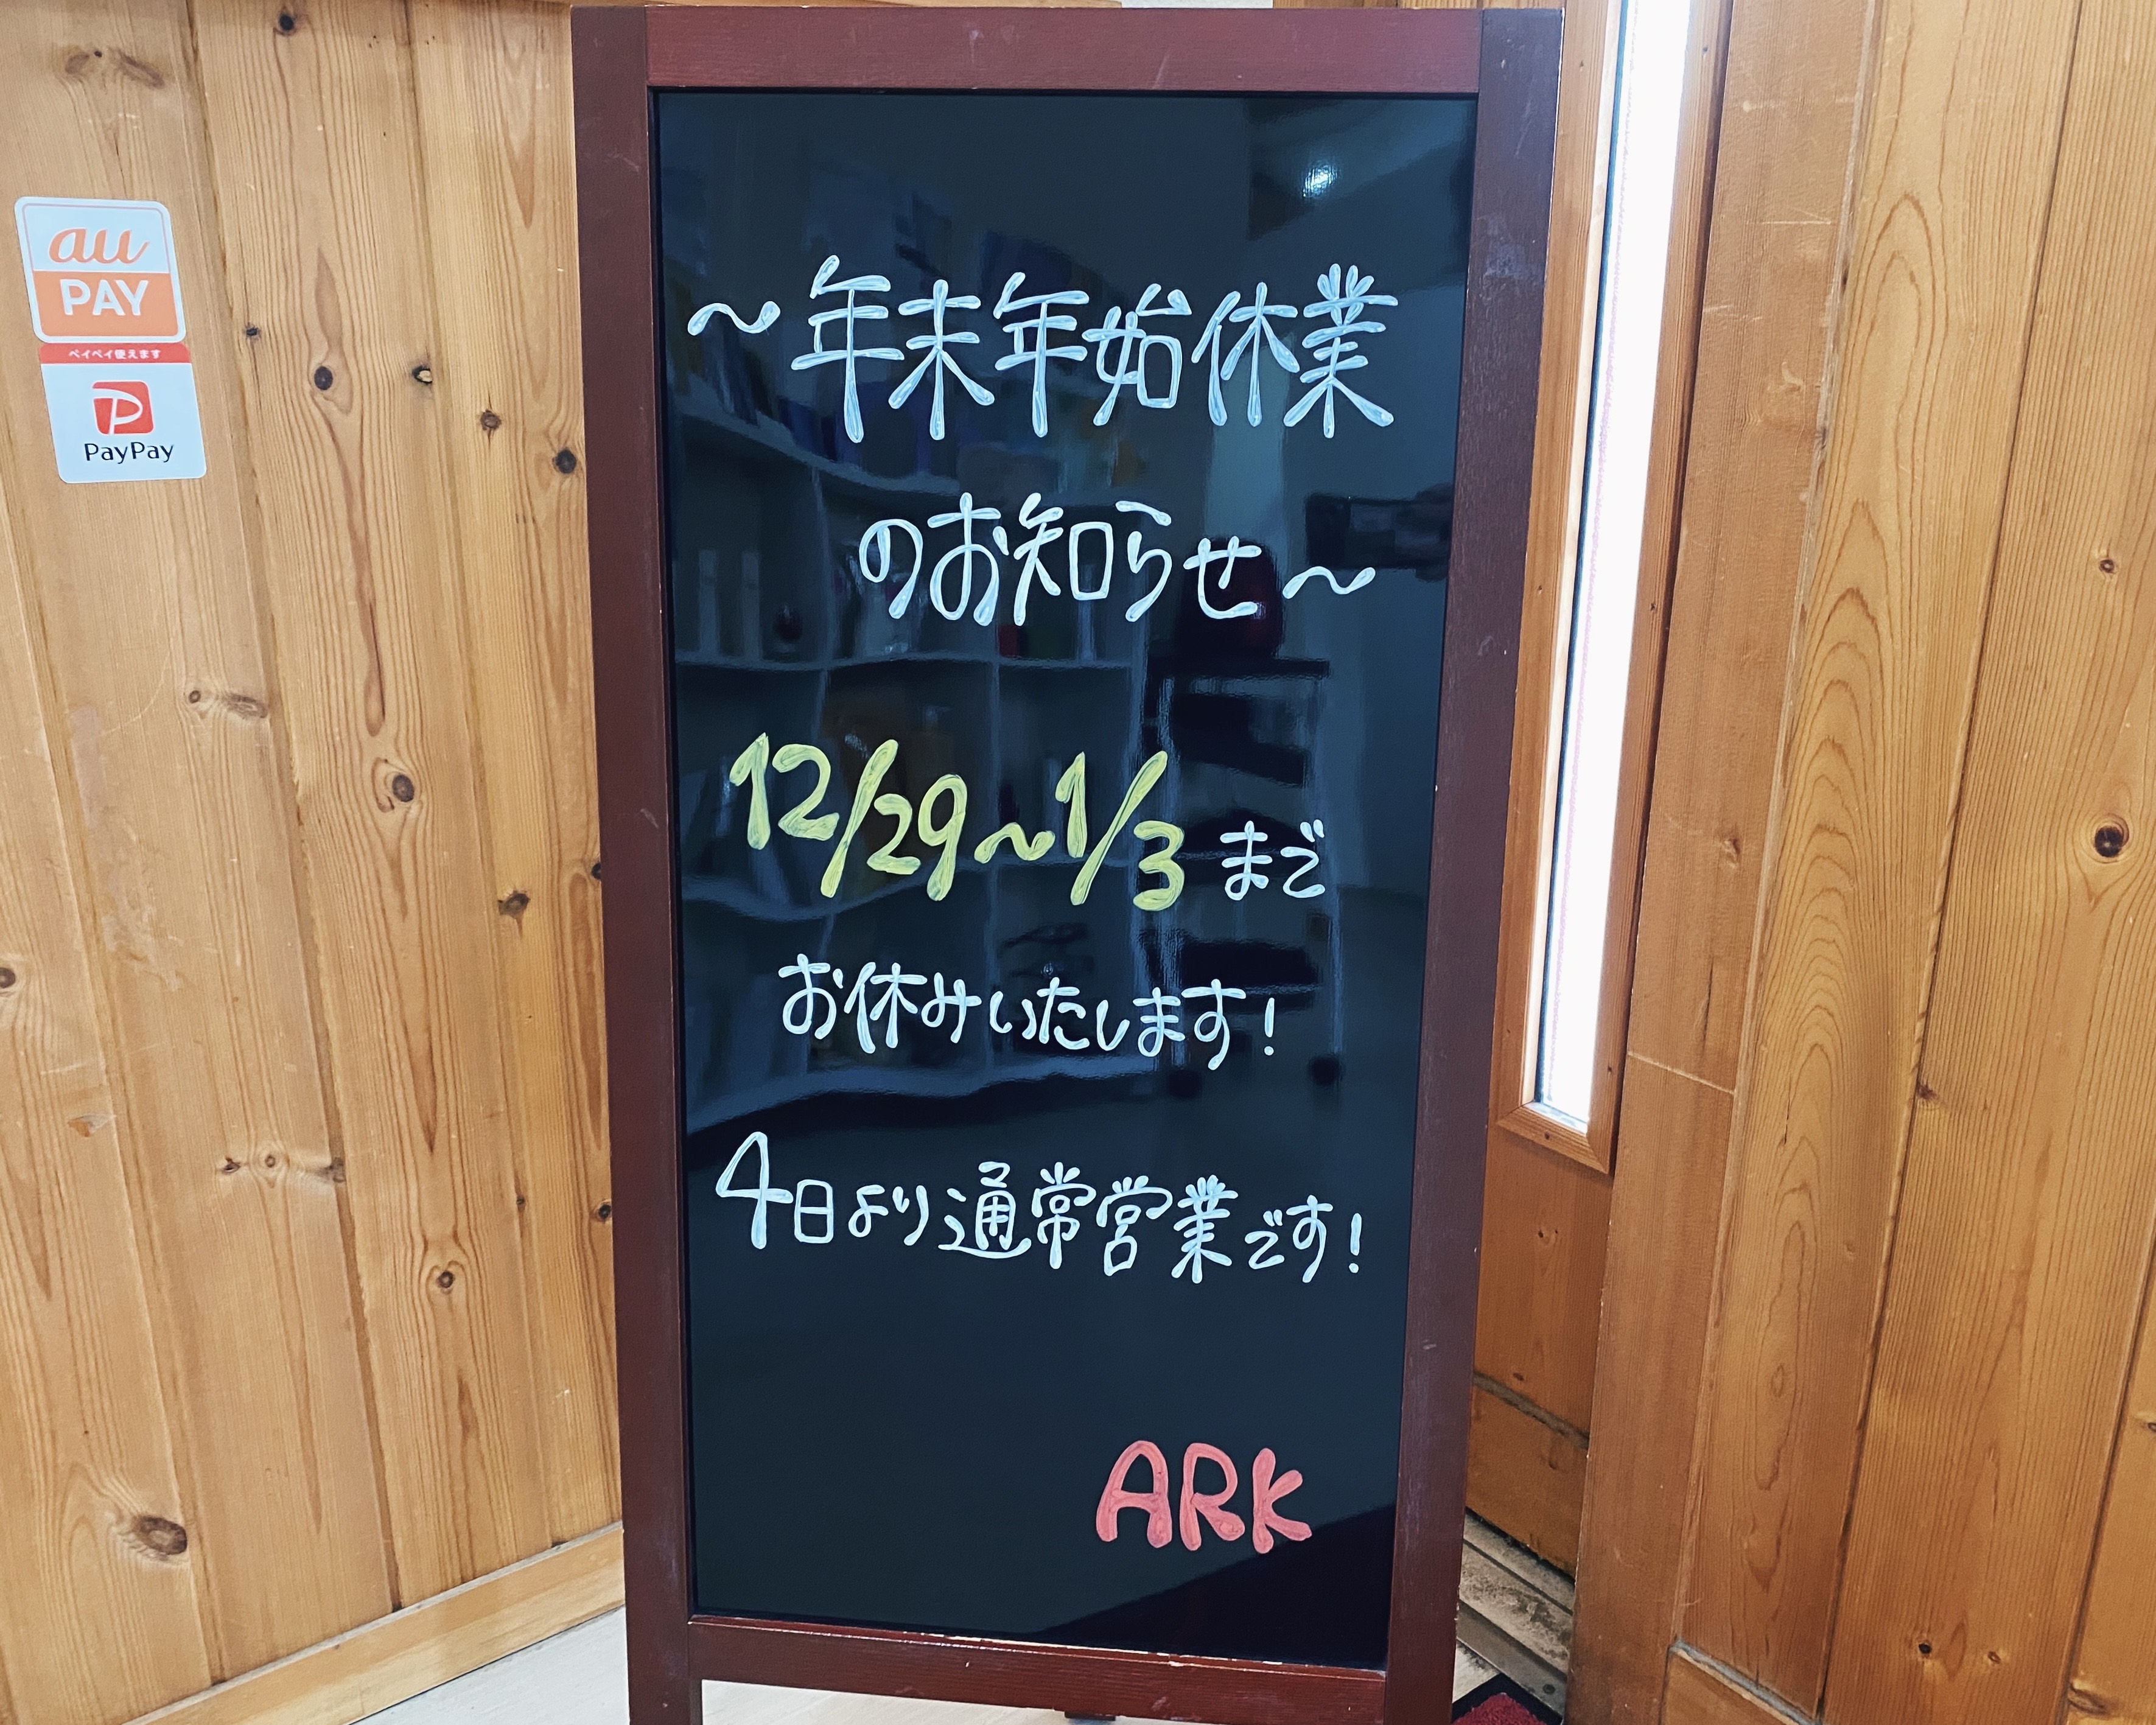 au
PAY
ペイペイ使えます
PayPay
～年末年始休業
のお知らせ～
12/29～1/3 まで
お休みいたします！
4日より通常営業です！
ARK